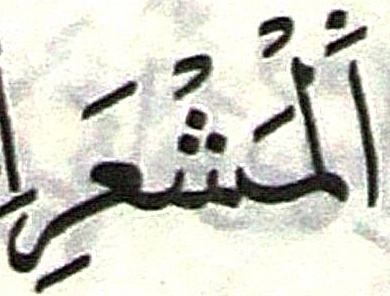 اَلْمَشْعَرِ